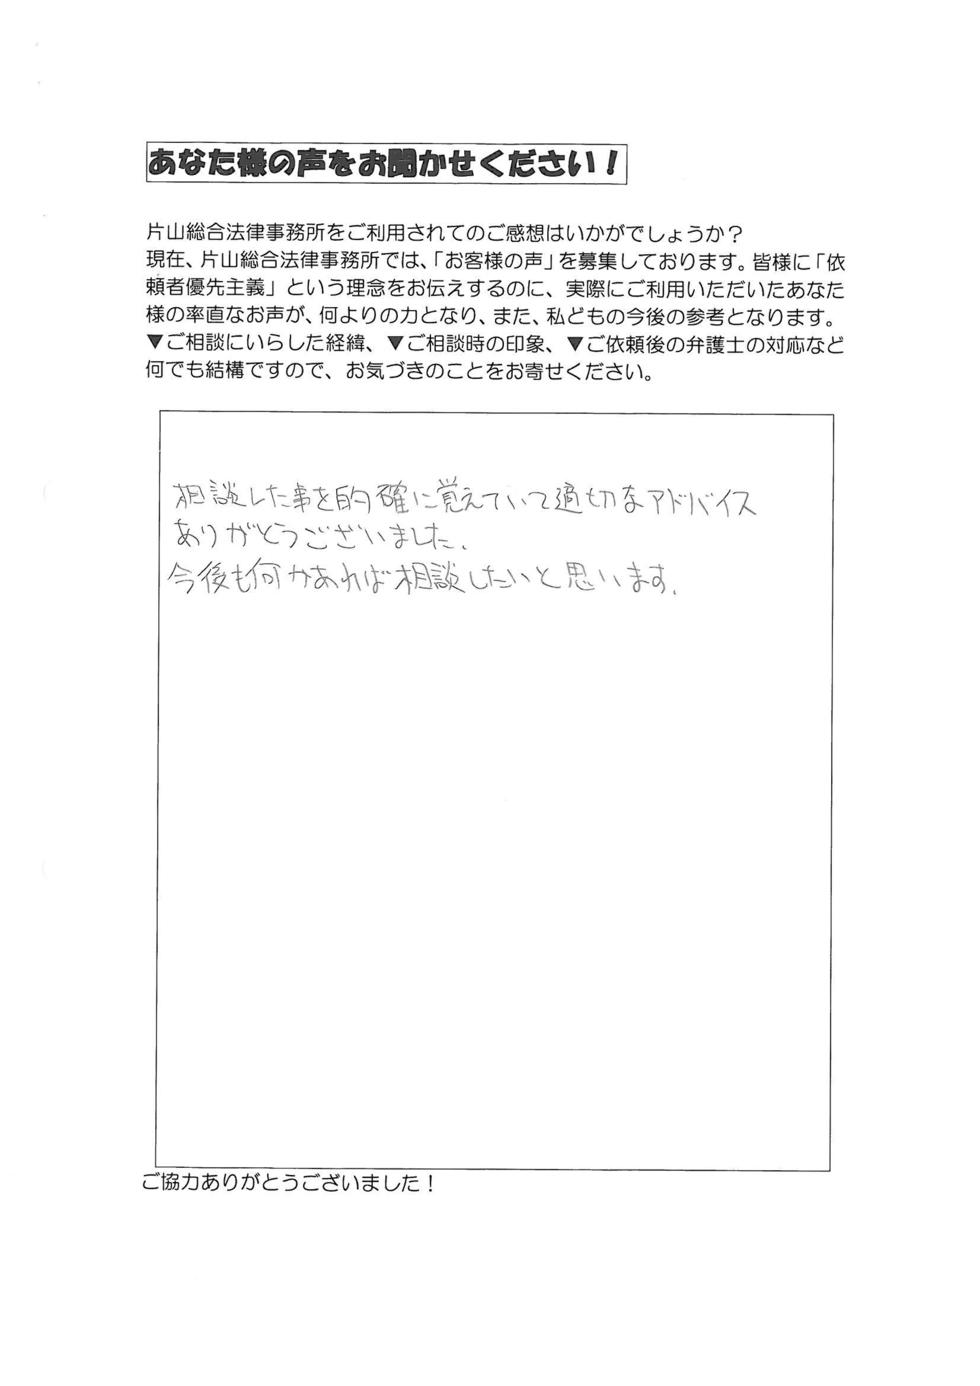 あなた様の声をお聞かせください！
片山総合法律事務所をご利用されてのご感想はいかがでしょうか？
現在、片山総合法律事務所では、「お客様の声」を募集しております。皆様に「依
頼者優先主義」という理念をお伝えするのに、実際にご利用いただいたあなた
様の率直なお声が、何よりの力となり、また、私どもの今後の参考となります。
▼ご相談にいらした経緯、▼ご相談時の印象、▼ご依頼後の弁護士の対応など
何でも結構ですので、お気づきのことをお寄せください。
相談した事を的確に覚えていて適切なアドバイス
ありがとうございました。
今後も何かあれば相談したいと思います。
ご協力ありがとうございました！